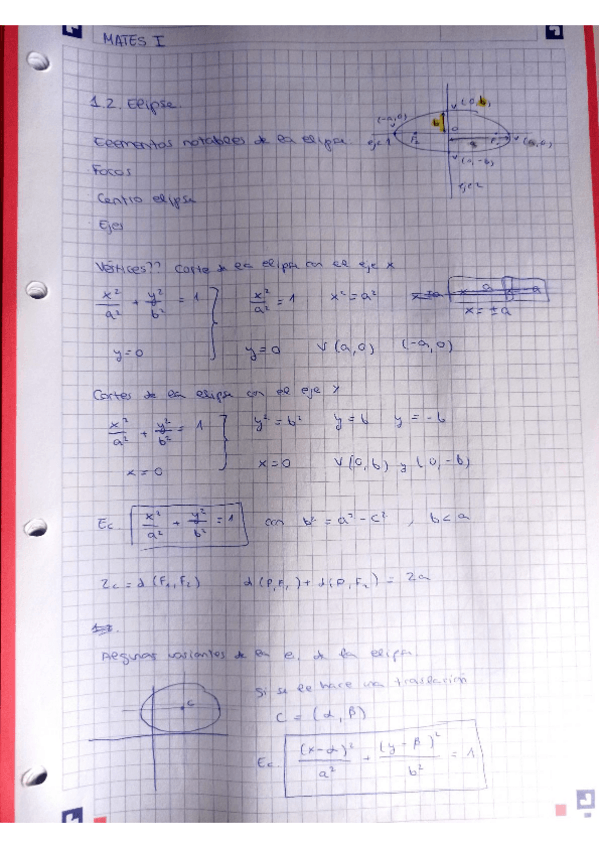 MATES I
1.2. Elipse.
Elementos notables de la elipse.
Focos
Centro elipse
Ejes
(-a,0)
V (0,b)
b
0
a
F₂
V (a,0)
V (0,-b)
eje 1
eje 2
Vértices?? Corte de la elipse con el eje x
x²/a² + y²/b² = 1 } x²/a² = 1 x² = a²
x = ±a
y=0 y=0 V (a,0) (-a,0)
Cortes de la elipse con el eje y
x²/a² + y²/b² = 1 } y² = b² y = b y = -b
x=0 x=0 V(0,b) y (0,-b)
Ec. x²/a² + y²/b² = 1 con b² = a² - c² , b < a
2c = d (F₁,F₂) d(P,F₁) + d(P,F₂) = 2a
Algunas variantes de la e. de la elipse.
Si se le hace una traslación
C
C = (α, β)
Ec. (x-α)²/a² + (y-β)²/b² = 1